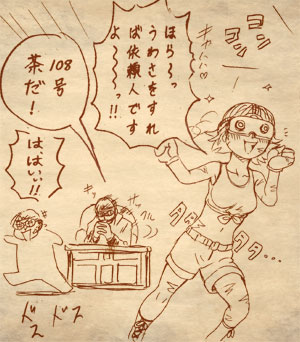 ヨンヨン
キャハハ♡
ほらぁ〜っ
うわさをすれ
ば依頼人です
よ〜〜っ!!
108号
茶だ!
は、はいぃ!!
キッ
クルッ
タタタ
タタ…
ドス
ドス